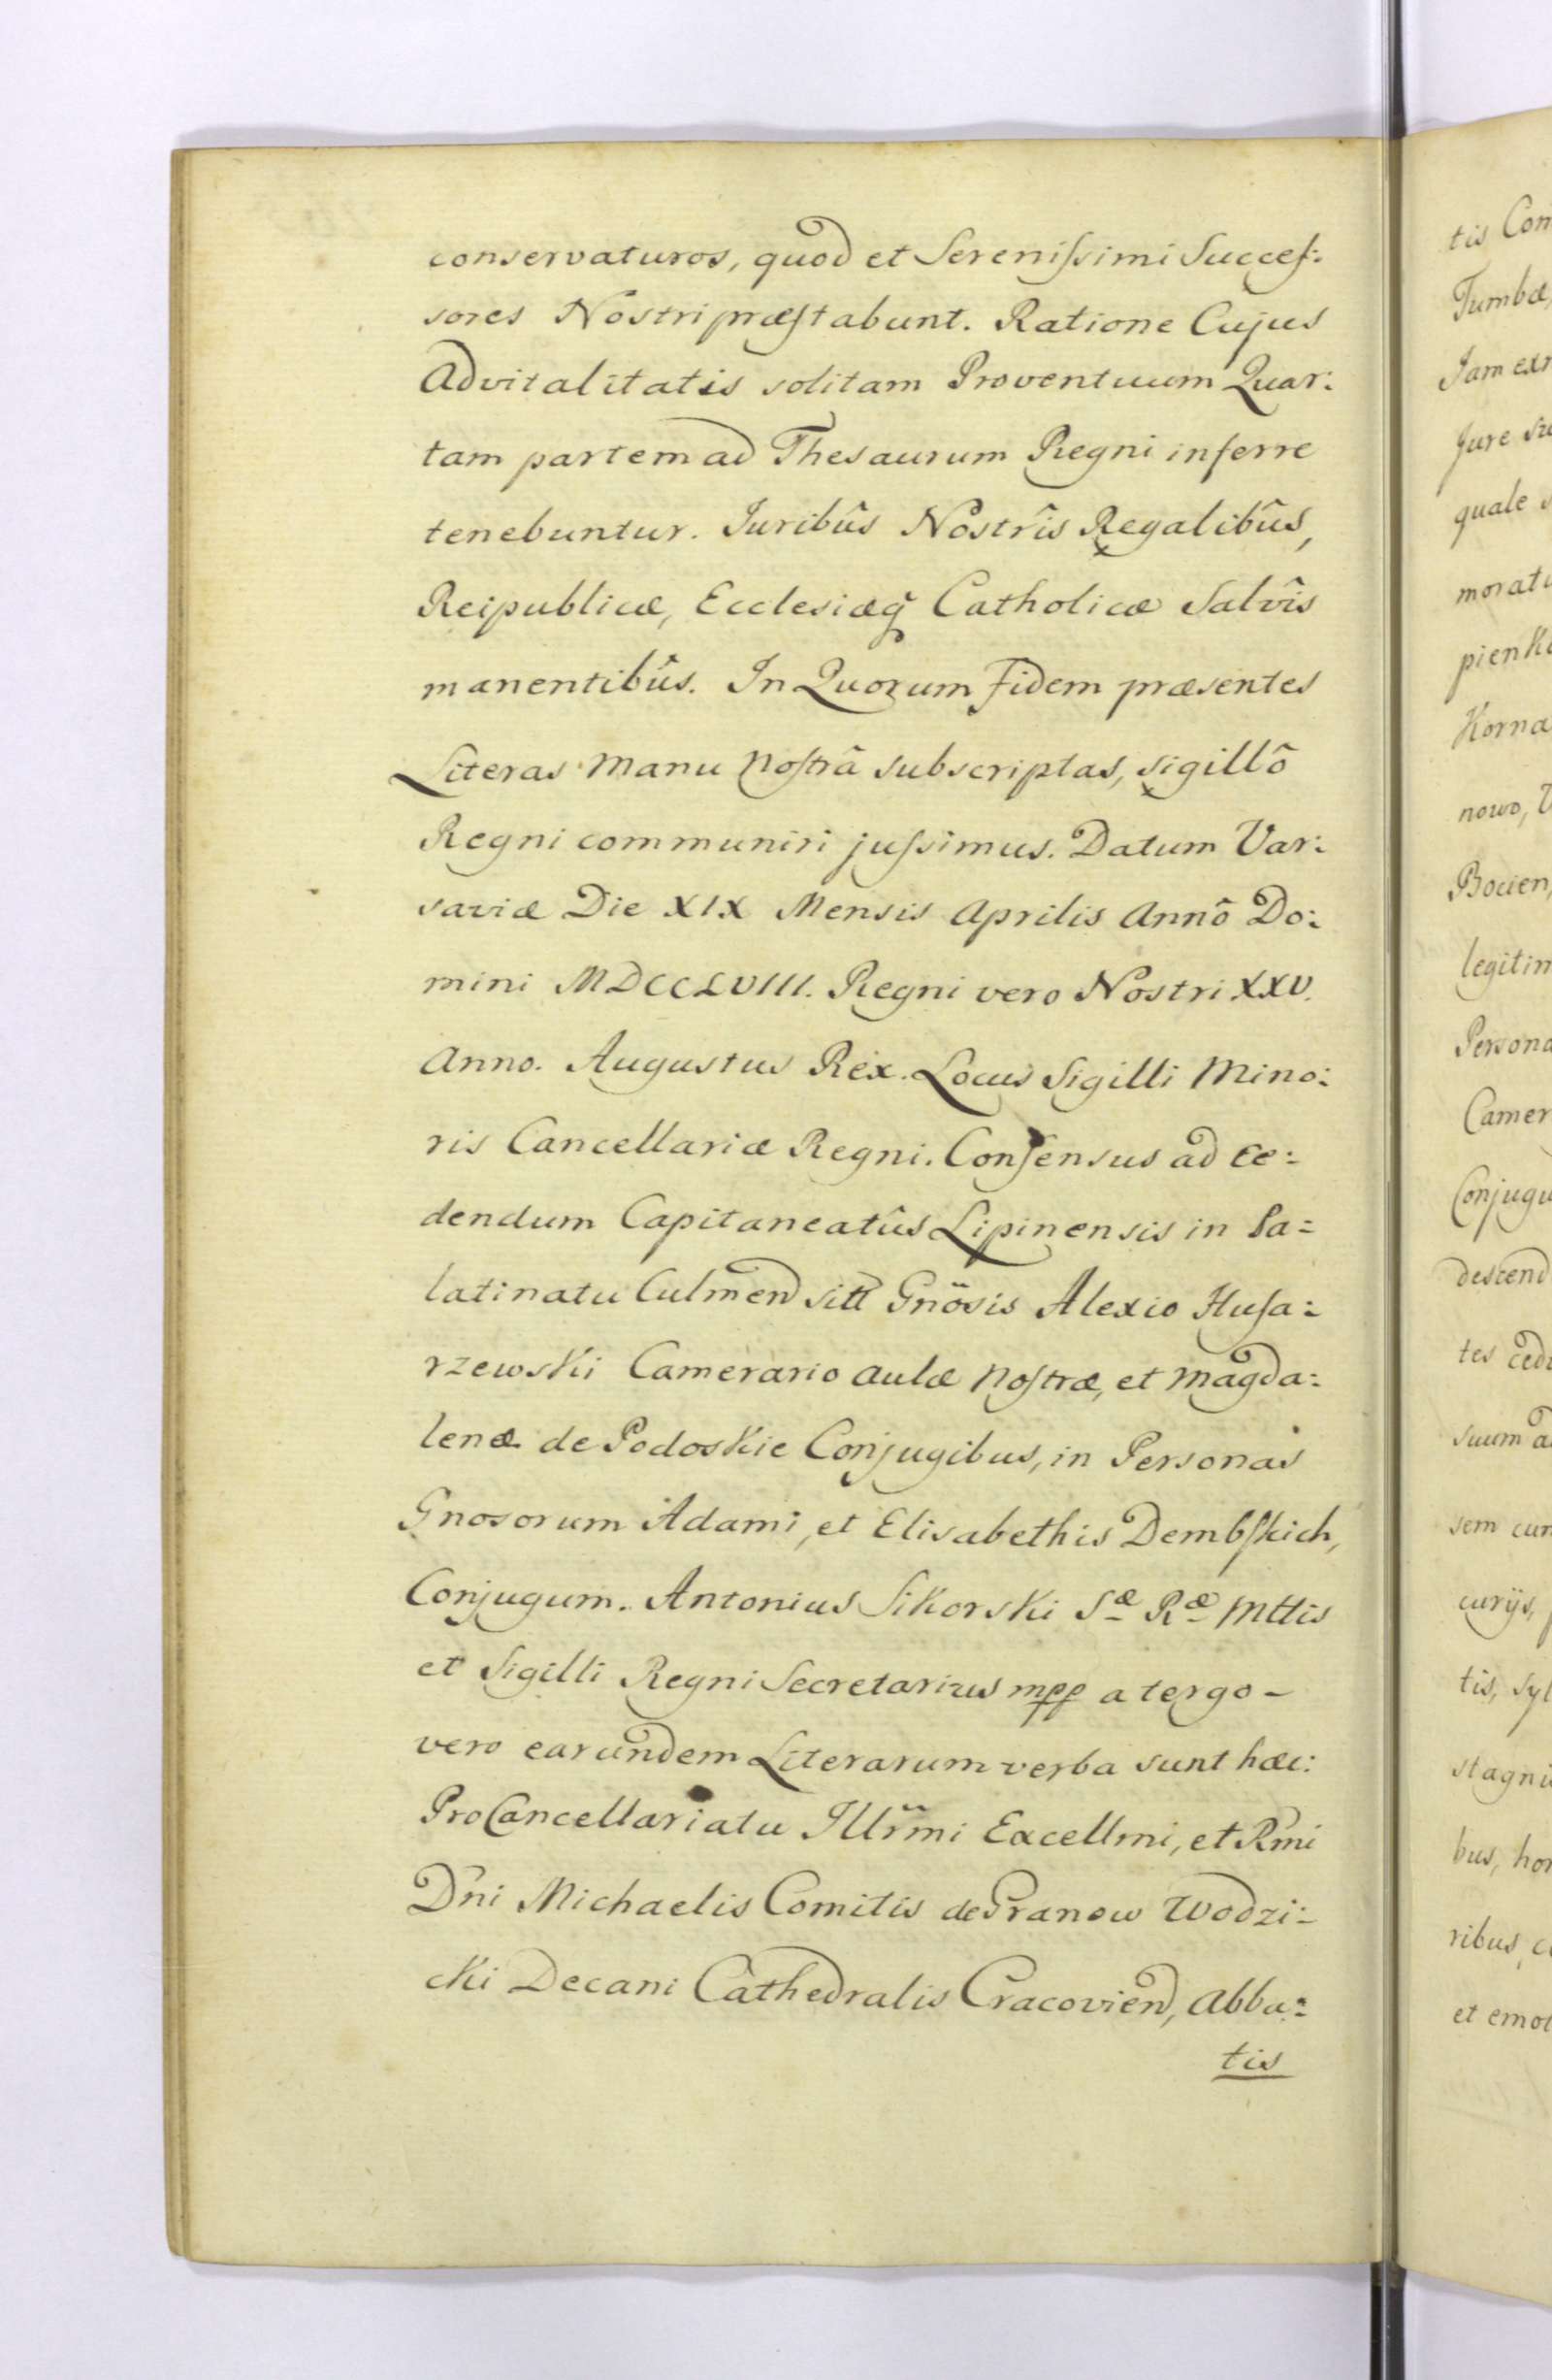 conservaturos, quod et Serenissimi Succes:
sores Nostri præstabunt. Ratione Cujus
Advitalitatis solitam Proventuum Quar:
tam partem ad Thesaurum Regni inferre
tenebuntur. Juribûs Nostrîs Regalibûs,
Reipublicæ, Ecclesiæq̃ Catholicæ Salvîs
manentibûs. In Quorum Fidem præsentes
Literas Manu Nostrâ subscriptas, sigillô
Regni communiri jussimus. Datum Var:
saviæ Die XIX Mensis Aprilis Annô Do:
mini MDCCLVIII. Regni vero Nostri XXV.
Anno. Augustus Rex. Locus Sigilli Mino:
ris Cancellariæ Regni. Consensus ad ce:
dendum Capitaneatûs Lipinensis in Pa=
latinatu Culmen̄ sitt Gnösis Alexio Husa:
rzewski Camerario Aulæ Nostræ, et Magda:
lenæ de Podoskie Conjugibus, in Personas
Gnosorum Adami, et Elisabethis Dembskich,
Conjugum. Antonius Sikorski Sæ Ræ Mttis
et Sigilli Regni Secretarius mpp a tergo –
vero earundem Literarum verba sunt hæc:
ProCancellariatu Illr̃mi Excellmi, et Rmi
Dni Michaelis Comitis de Granow Wodzi:
cki Decani Cathedralis Cracovien̄, Abba:
tis
tis Com
Tumbæ,
Jam ex
Jure
quale
morat
pienk
Korna
nowo,
Bocien,
legitim
Persona
Camer
Conjugu
descend
tes ced
suum a
sem cum
curijs,
tis, syl
stagni
bus, hor
ribus, c
et emol